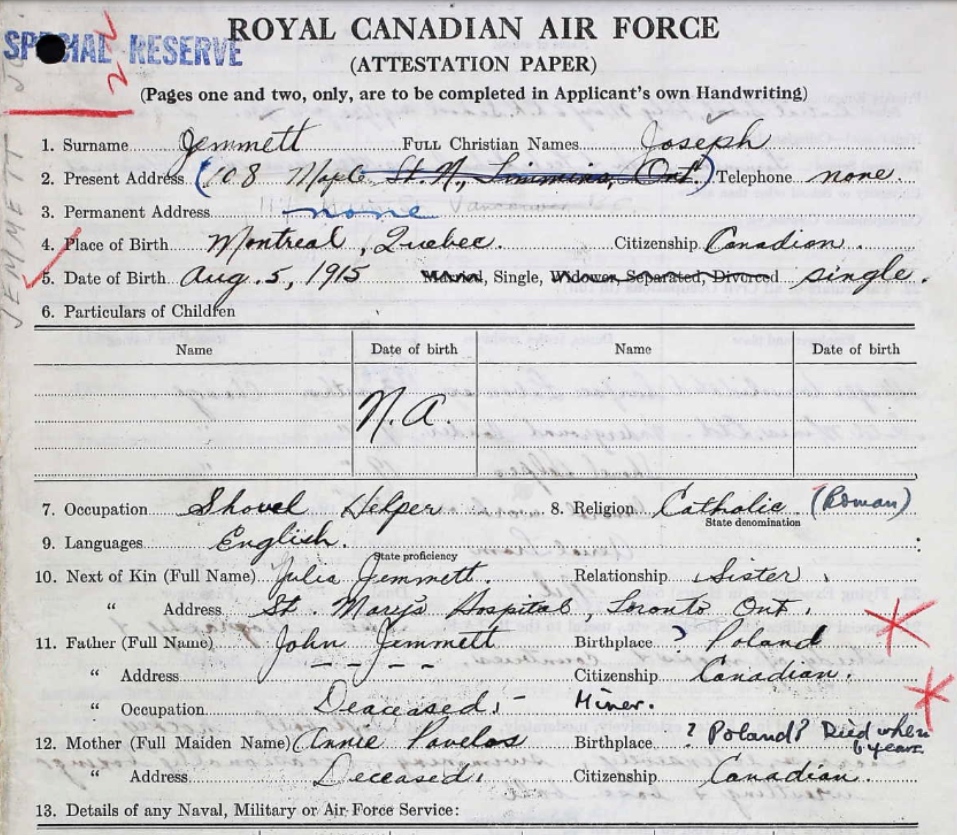 ROYAL CANADIAN AIR FORCE
SPECIAL RESERVE
(ATTESTATION PAPER)
(Pages one and two, only, are to be completed in Applicant's own Handwriting)
JEMMETT
1. Surname Jemmett FULL Christian Names Joseph
2. Present Address (108 Maple St. N., Timmins, Ont.) Telephone none
3. Permanent Address none
4. Place of Birth Montreal, Quebec. Citizenship Canadian.
5. Date of Birth Aug. 5, 1915 Married, Single, Widower, Separated, Divorced single.
6. Particulars of Children
Name Date of birth Name Date of birth
N.A.
7. Occupation Shovel Helper 8. Religion Catholic (Roman)
State denomination
9. Languages English.
State proficiency
10. Next of Kin (Full Name) Julia Jemmett. Relationship Sister.
" Address St. Mary's Hospital Toronto Ont.
11. Father (Full Name) John Jemmett Birthplace ? Poland
" Address - - - - Citizenship Canadian.
" Occupation Deaceased. - Miner.
12. Mother (Full Maiden Name) (Annie Pavelos Birthplace ? Poland? Died when 6 years.
" Address Deceased. Citizenship Canadian.
13. Details of any Naval, Military or Air Force Service: